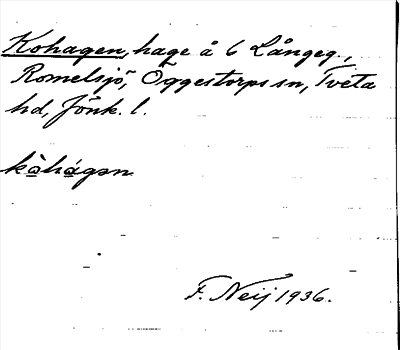 Kohagen, hage å 6 Långeg.,
Romelsjö, Öggestorps sn, Tveta
hd, Jönk. l.
kòhágən
F. Neij 1936.